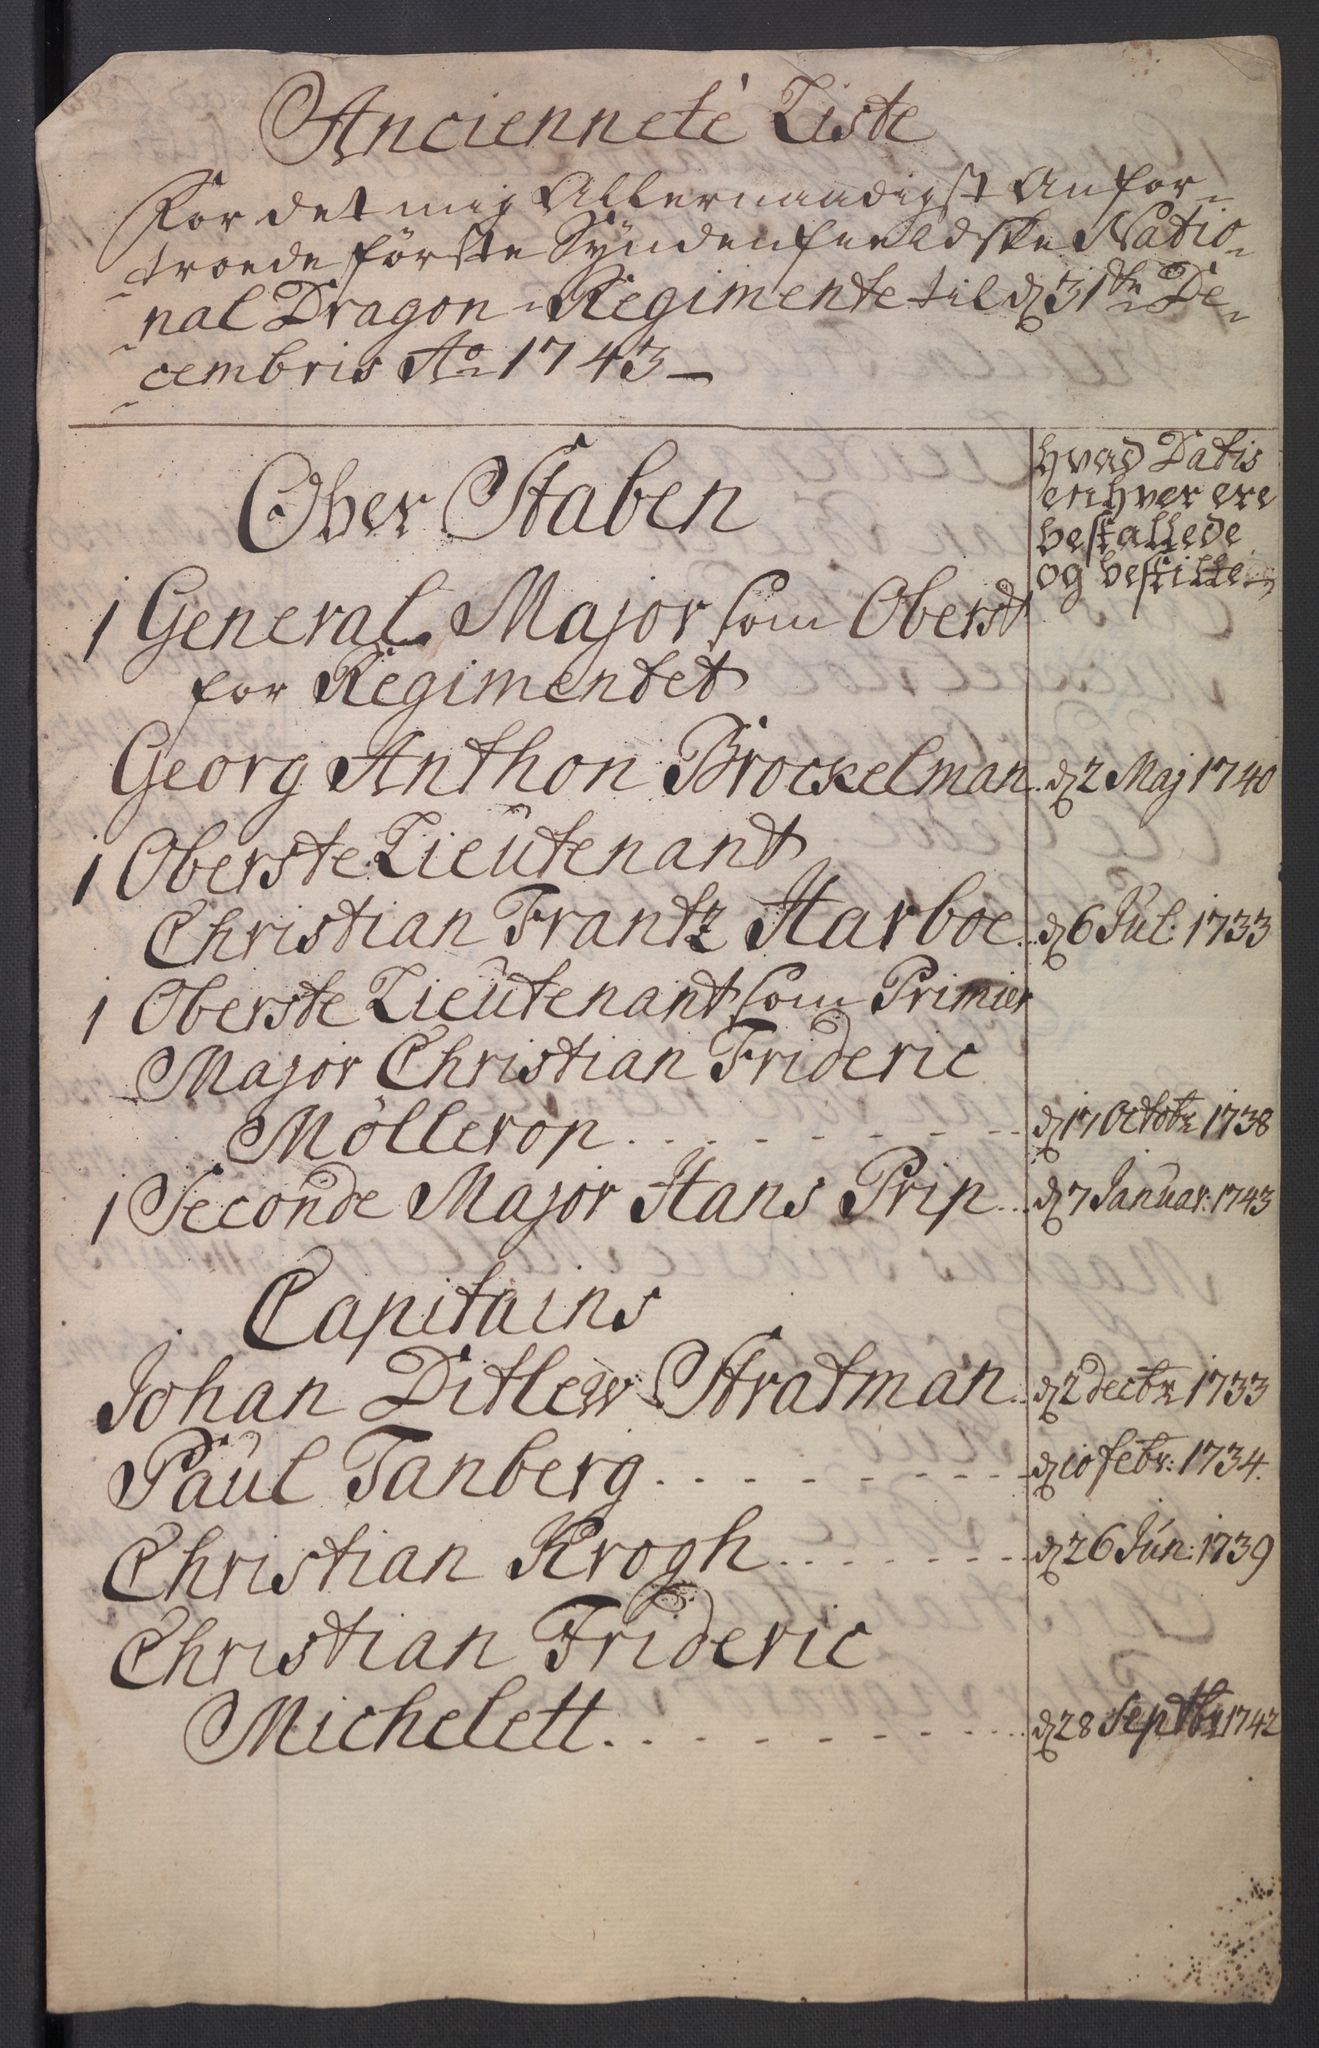 Ancienneté Liste
For det mig Allernaadigst Anfor-
troede første Syndenfieeldske Natio-
nal Dragon-Regimente til d 31te De-
cembris Ao 1743
hvad Datis
enhver ere
bestallede
og bestilte
Ober Staben
1 General Major som Oberst
for Regimentet
Georg Anthon Brockelman d 2 Maj 1740
1 Oberste Lieutenant
Christian Frantz Harboe d 6 Jul: 1733
1 Oberste Lieutenant som Primier
Major Christian Frideric
Møllerop d 17 Octobr 1738
1 Seconde Major Hans Prip d 7 Januar: 1743
Capitains
Johan Ditlew Stratman d 2 decbr 1733
Paul Tanberg d 10 febr: 1734
Christian Krogh d 26 Jun: 1739
Christian Frideric
Michelett d 28 Septbr 1742